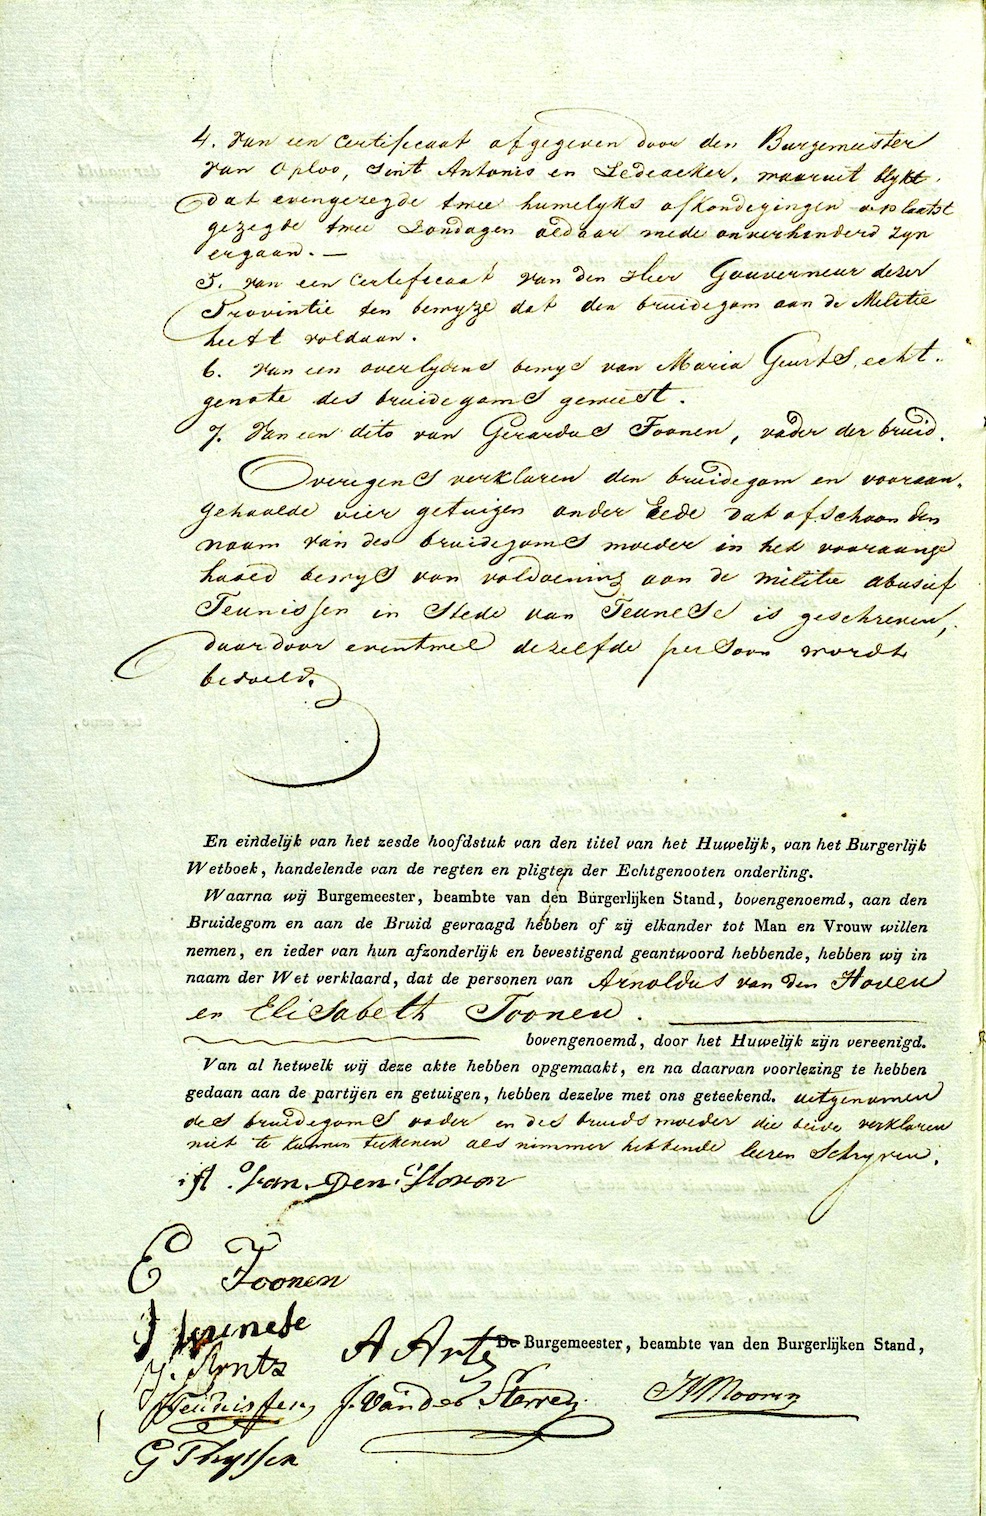 4. Van een Certificaat afgegeven door den Burgemeester
van Oploo, Sint Antonis en Ledeacker, waaruit blykt
dat evengezegde twee huwelyks afkondegingen ter plaatse
gezegde twee Zondagen aldaar mede onverhinderd zyn
ergaan. —
5. van een Certeficaat van den Heer Gouverneur dezer
Provintie ten bewyze dat den bruidegom aan de Melitie
heeft voldaan.
6. Van een overlydens bewys van Maria Geurts, echt-
genote des bruidegoms geweest.
7. Van een dito van Gerardus Toonen, vader der bruid.
Overigens verklaren den bruidegom en vooraan-
gehaalde vier getuigen onder Eede dat ofschoon den
naam van des bruidegoms moeder in het vooraange
haald bewys van voldoening aan de militie abusief
Teunissen in Stede van Teunesse is geschreven,
daardoor eventwel dezelfde persoon wordt
bedoeld.
En eindelijk van het zesde hoofdstuk van den titel van het Huwelijk, van het Burgerlijk
Wetboek, handelende van de regten en pligten der Echtgenooten onderling.
Waarna wij Burgemeester, beambte van den Burgerlijken Stand, bovengenoemd, aan den
Bruidegom en aan de Bruid gevraagd hebben of zij elkander tot Man en Vrouw willen
nemen, en ieder van hun afzonderlijk en bevestigend geantwoord hebbende, hebben wij in
naam der Wet verklaard, dat de personen van Arnoldus van den Hoven
en Elisabeth Toonen.
bovengenoemd, door het Huwelijk zijn vereenigd.
Van al hetwelk wij deze akte hebben opgemaakt, en na daarvan voorlezing te hebben
gedaan aan de partijen en getuigen, hebben dezelve met ons geteekend. uitgenomen
des bruidegoms vader en des bruids moeder die beide verklaren
niet te kunnen teekenen als nimmer hebbende leeren Schryven.
van Den Hoven
E Toonen
Teunese
J. Arntz A Artz De Burgemeester, beambte van den Burgerlijken Stand,
Teunissen J. van der Sterren H Mooren
G Thyssen